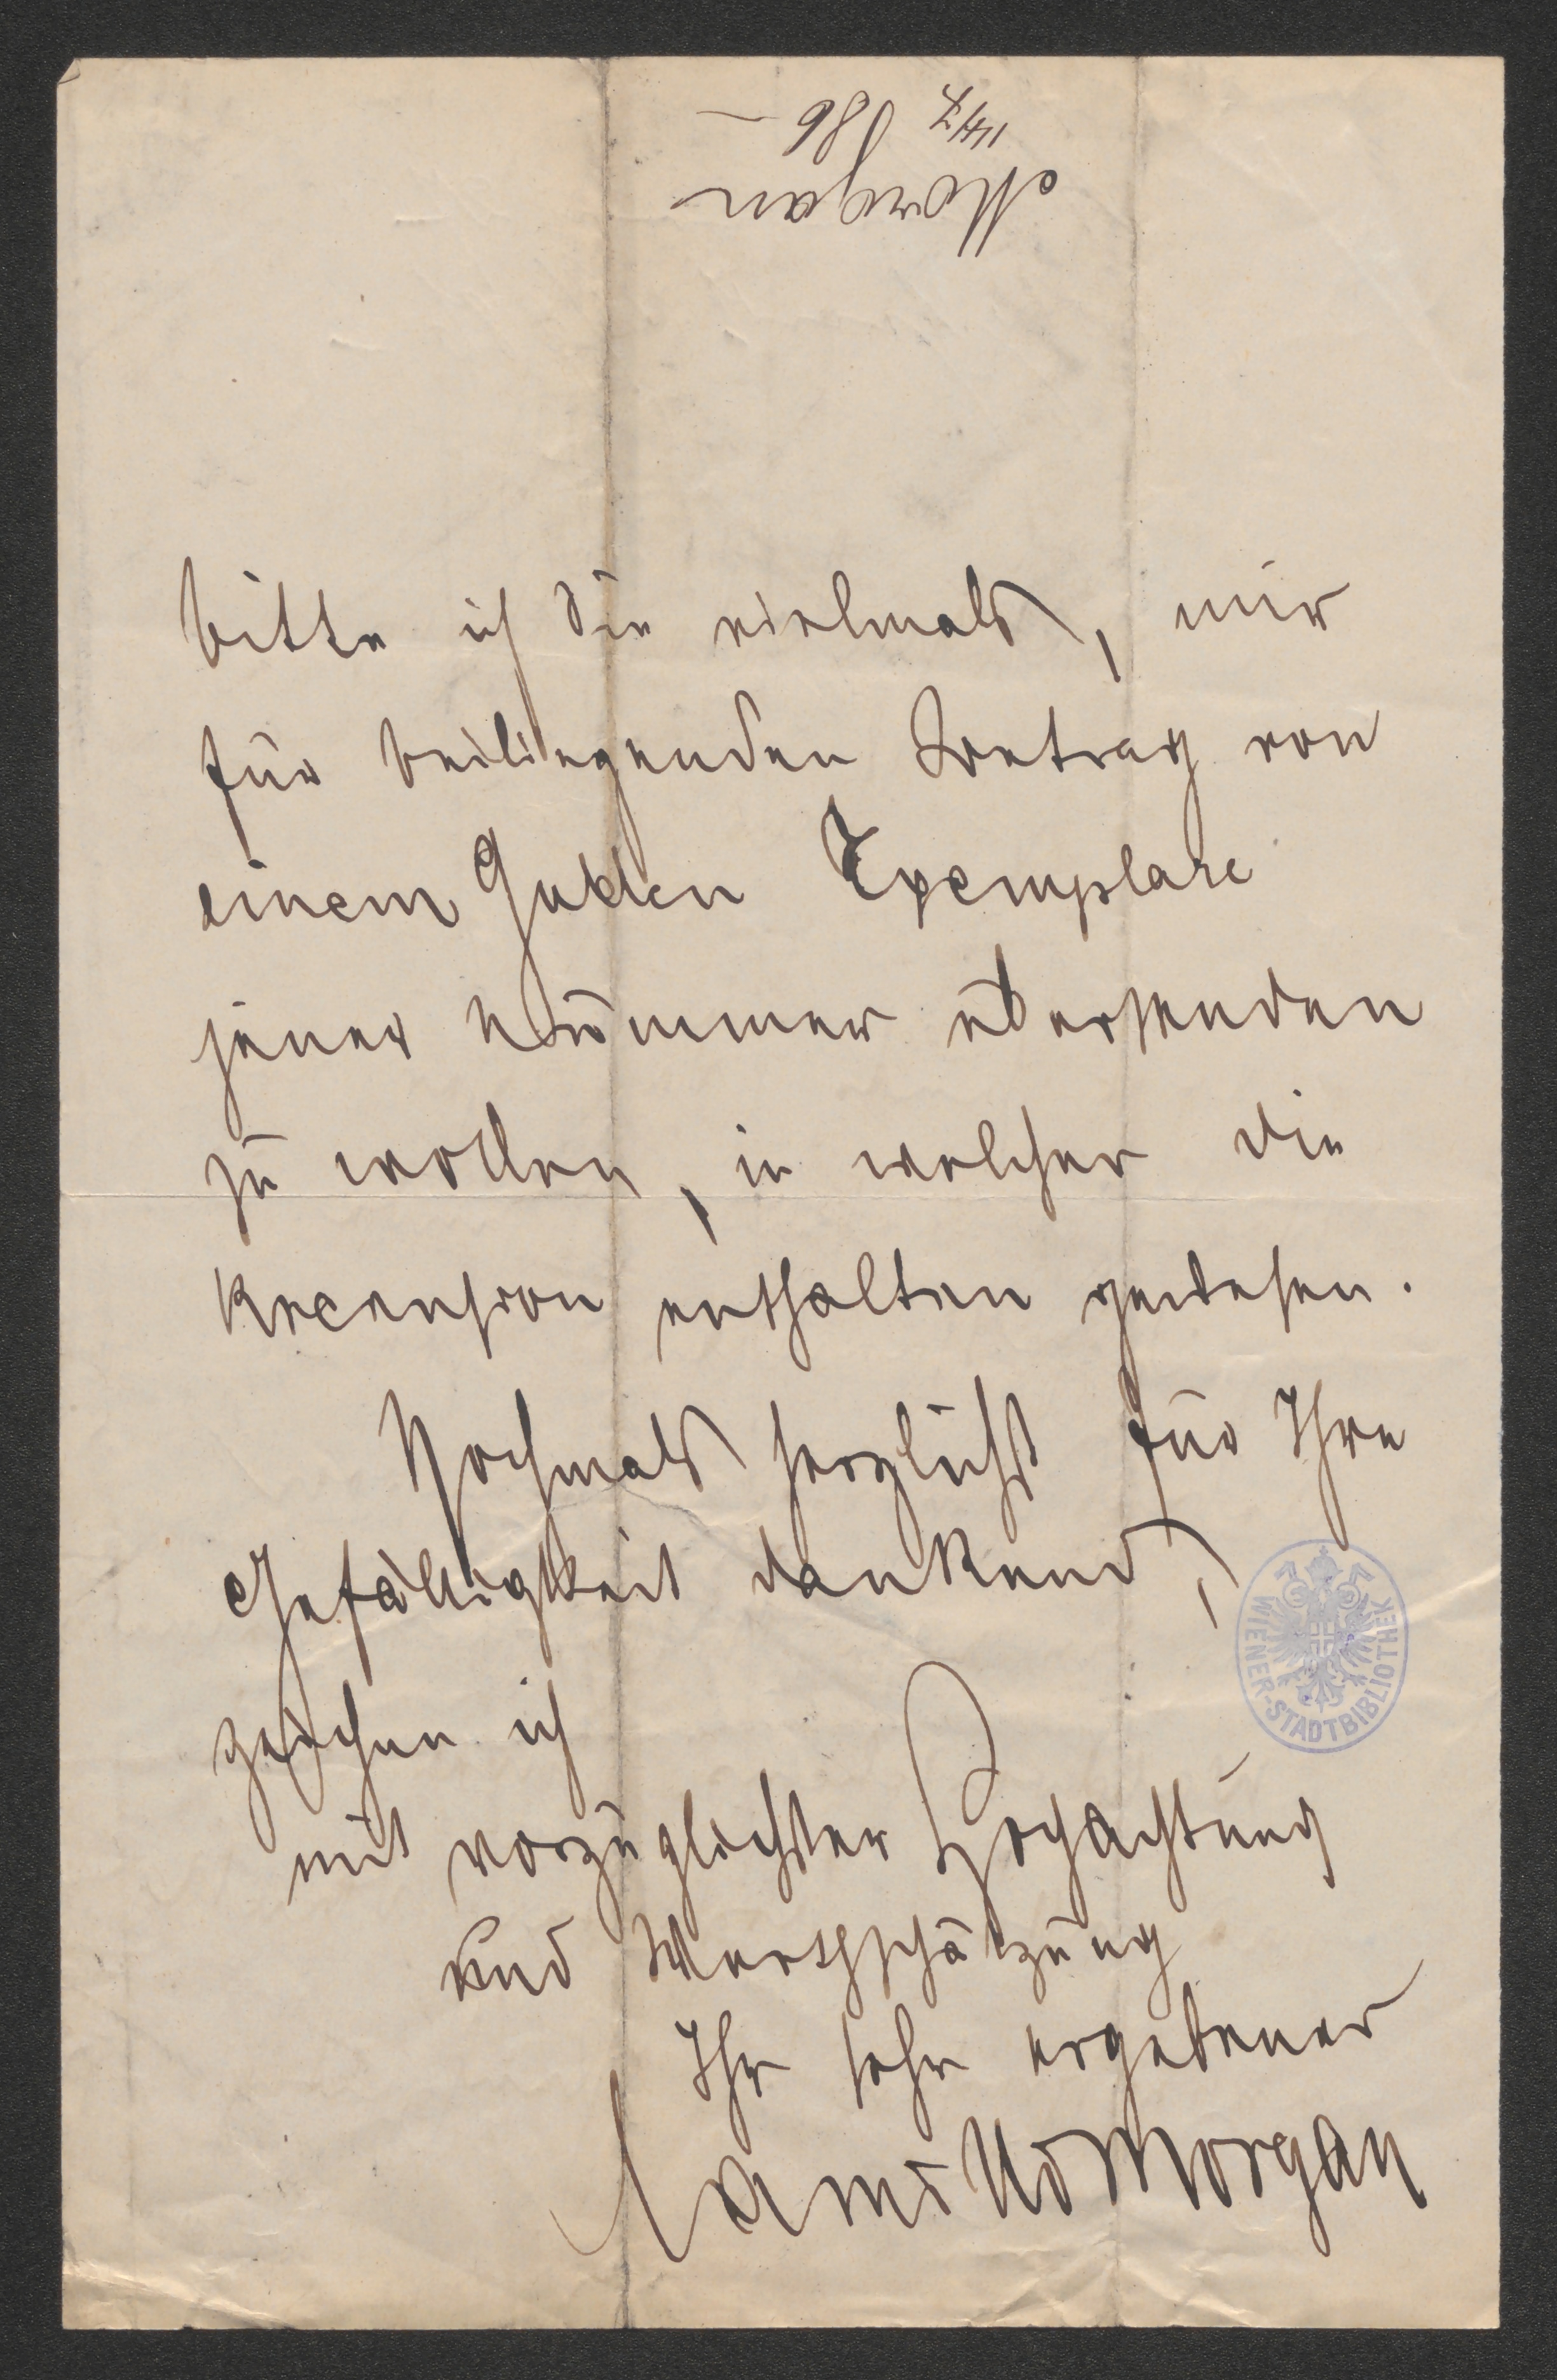 Morgan
14/7 886
bitte ich Sie vielmals, mir
für beiliegenden Betrag von
einem Gulden Exemplare
jener Nummer übersenden
zu wollen, in welcher die
Recension enthalten gewesen.
Nochmals herzlichst für Ihre
Gefälligkeit dankend,
zeichne ich
mit vorzüglichster Hochachtung
und Werthschätzung
Ihr sehr ergebener
Camillo Morgan
WIENER-STADTBIBLIOTHEK